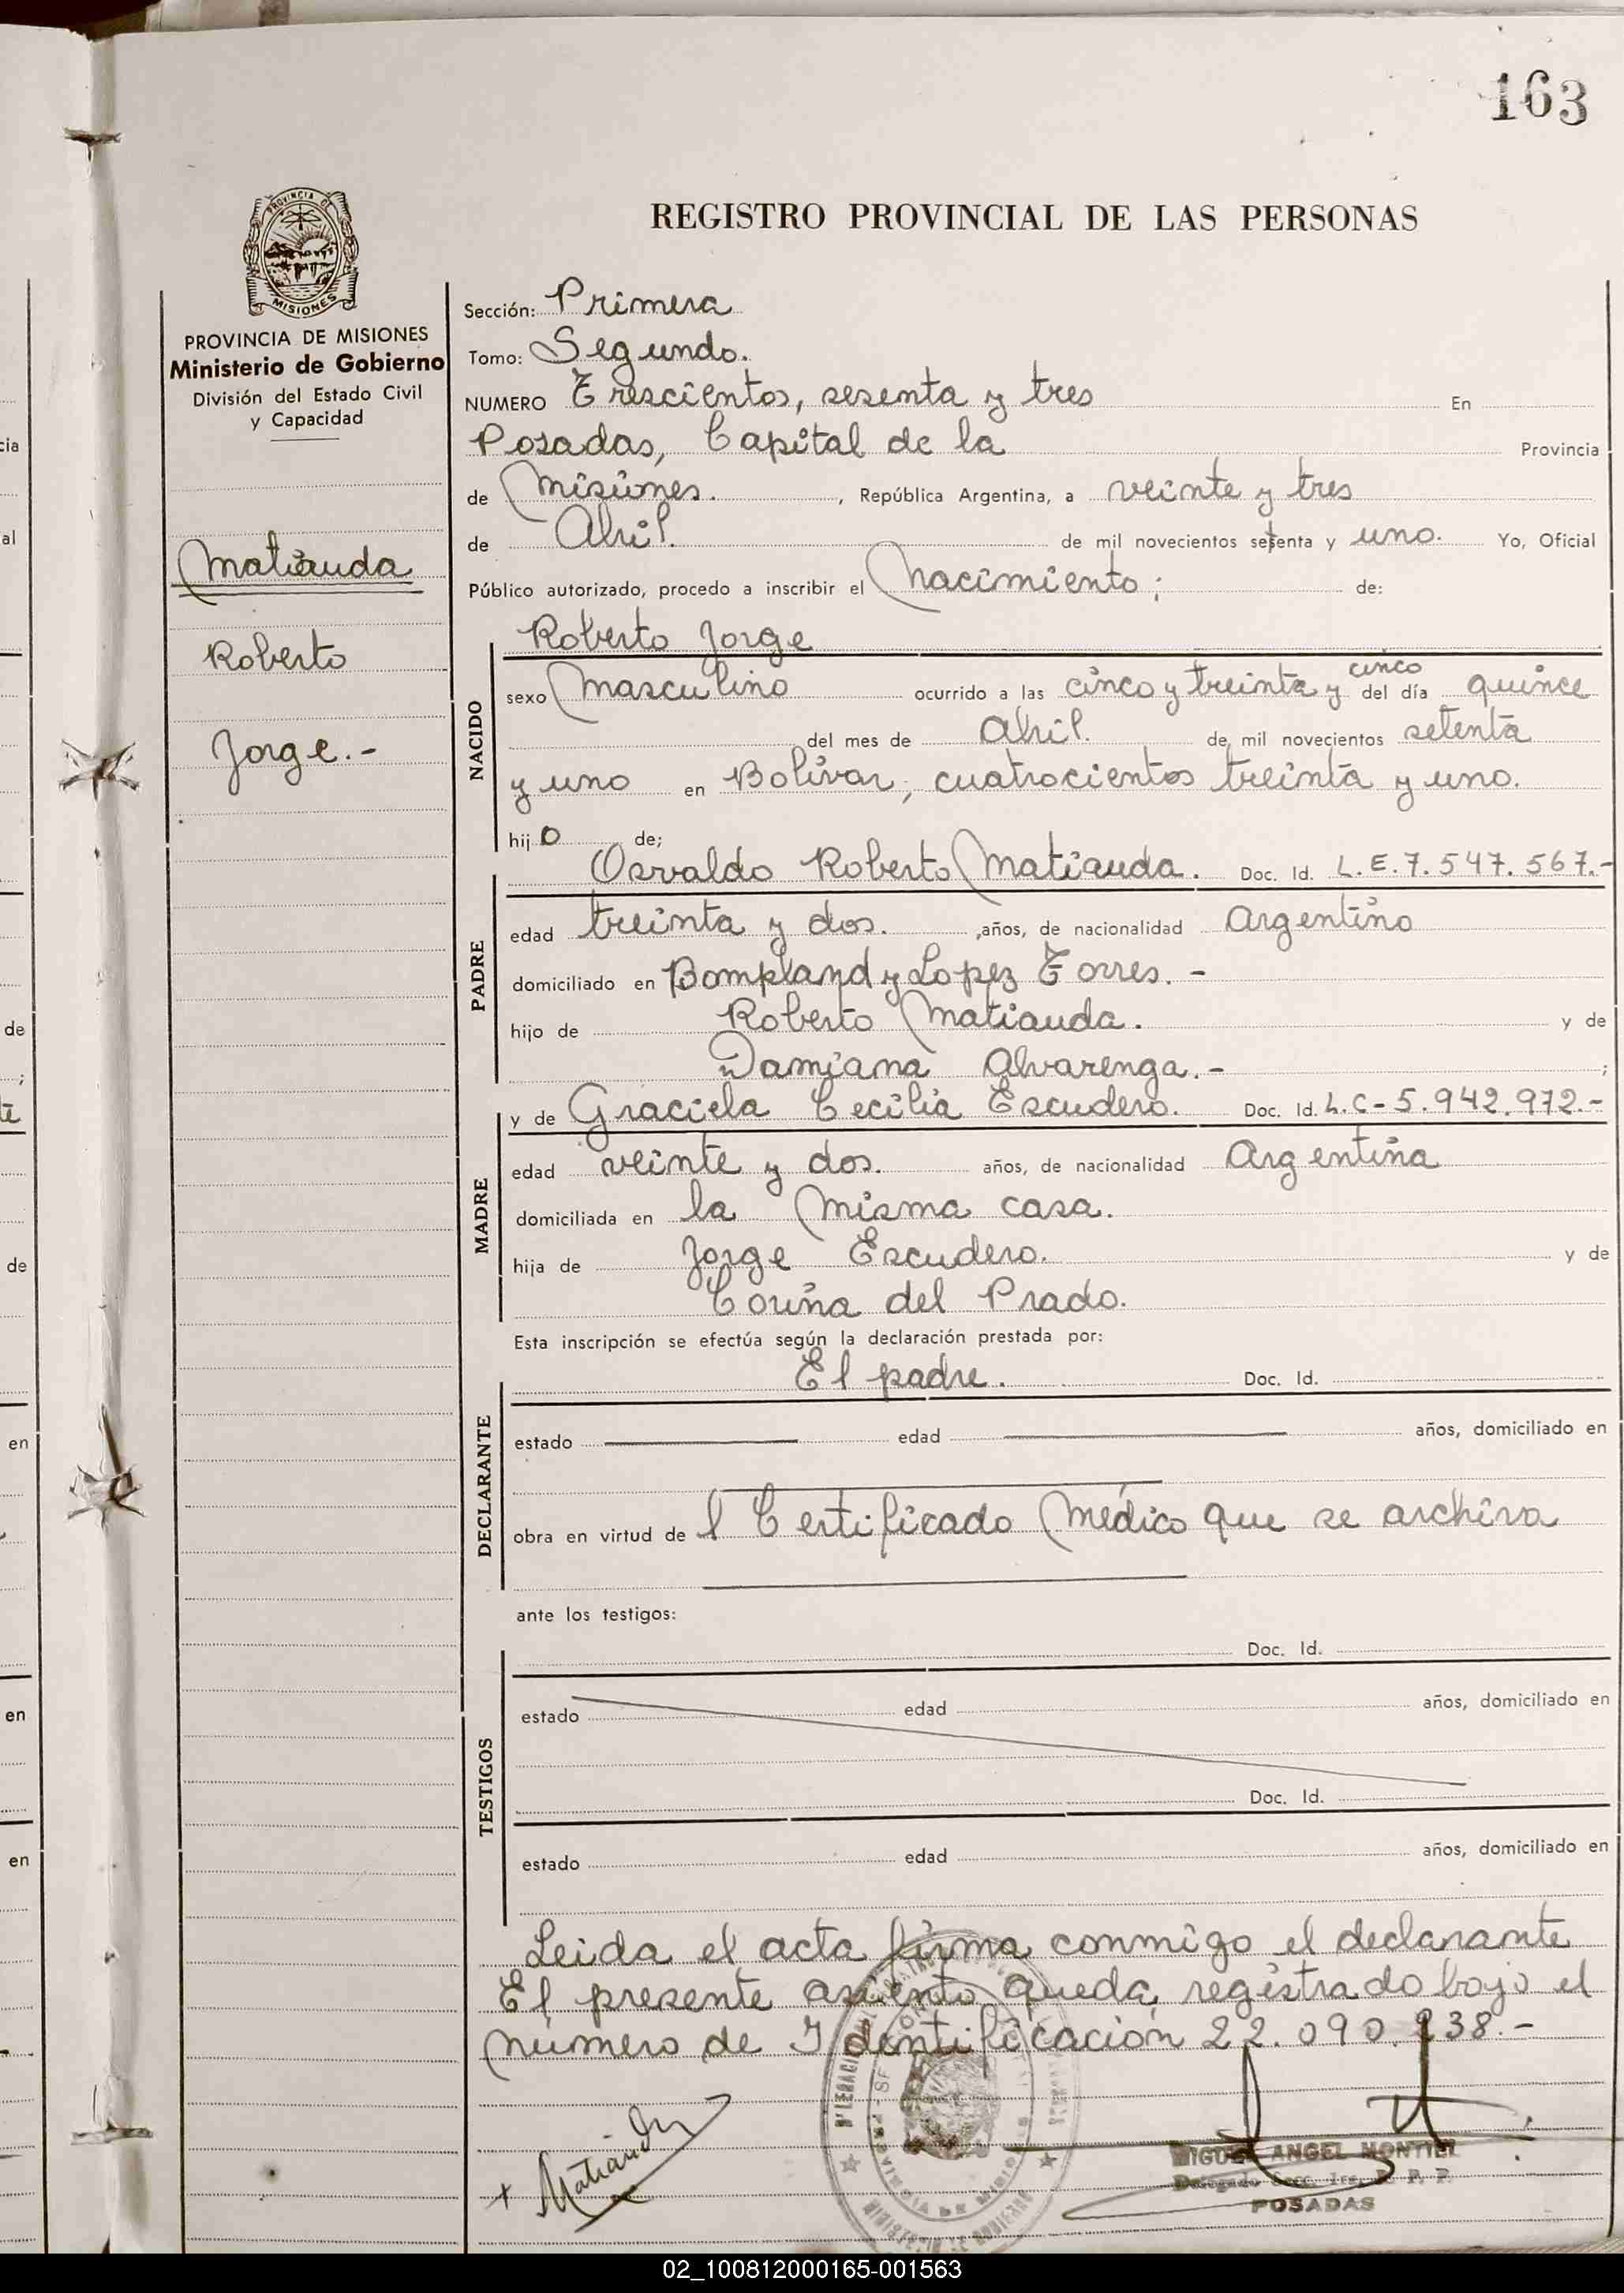 163
REGISTRO PROVINCIAL DE LAS PERSONAS
PROVINCIA DE
MISIONES
PROVINCIA DE MISIONES
Ministerio de Gobierno
División del Estado Civil
y Capacidad
Matiauda
Roberto
Jorge.-
Sección: Primera
Tomo: Segundo.
NUMERO Trescientos, sesenta y tres En
Posadas, Capital de la Provincia
de Misiones. , República Argentina, a veinte y tres
de Abril. de mil novecientos setenta y uno. Yo, Oficial
Público autorizado, procedo a inscribir el Nacimiento; de:
Roberto Jorge
NACIDO
sexo Masculino ocurrido a las cinco y treinta y cinco del día quince
del mes de Abril. de mil novecientos setenta
y uno en Bolívar, cuatrocientos treinta y uno.
hijo de;
Osvaldo Roberto Matiauda. Doc. Id. L.E.7.547.567.-
PADRE
edad treinta y dos. ,años, de nacionalidad Argentino
domiciliado en Bompland y Lopez Torres.-
hijo de Roberto Matiauda. y de
Damiana Alvarenga.- ;
y de Graciela Cecilia Escudero. Doc. Id. L.C-5.942.972.-
MADRE
edad veinte y dos. años, de nacionalidad Argentina
domiciliada en la Misma casa.
hija de Jorge Escudero. y de
Corina del Prado.
Esta inscripción se efectúa según la declaración prestada por:
El padre. Doc. Id.
DECLARANTE
estado edad años, domiciliado en
obra en virtud del Certificado Médico que se archiva
ante los testigos:
Doc. Id.
TESTIGOS
estado edad años, domiciliado en
Doc. Id.
estado edad años, domiciliado en
Leida el acta firma conmigo el declarante
El presente asiento queda registrado bajo el
número de Identificación 22.090.938.-
+ Matiauda
MIGUEL ANGEL MONTIEL
Delegado Secc. 1ra. R. P. P.
POSADAS
PROVINCIA DE MISIONES
de
en
de
en
en
02_100812000165-001563